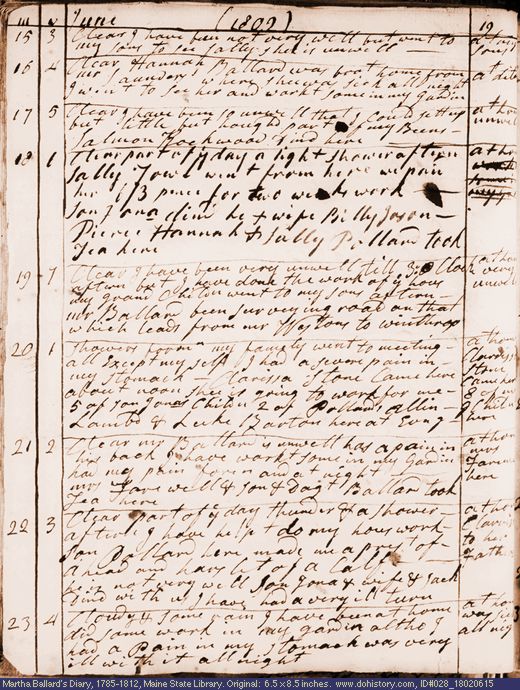 m w June (1802) 19
15 3 Clear I have been not very well but went to
my sons to see Sally she is unwell
16 4 Clear Hannah Ballard was brot home from
mr Saunders where she was sick all night
I went to see her and workt some in my gardin
17 5 Clear I have been so unwell that I could set up
but little but hough'd part of my Beens
Salmon Rockwood dind here
18 Clear part of ye day a light shower aftern
Sally Towl went from here we paid
her 1/3 pence for two weeks work
son Jona dind he & wife Billy Jason
Pierce Hannah & Sally Pollard took
Tea here
19 7 Clear I have been very unwell till 3 o Clock
aftern but have done the work of ye hous
my grand Children went to my sons aftern
mr Ballard been surveying road on that
which leads from mr Westons to winthrop
20 1 Showers foren my family went to meeting
all Except my self I had a severe pain in
my stomach Clarissa Stone Came here
about noon shee is going to work for me
5 of son Jonas Children 2 of Pollards allin
Lambd & Luke Barton here at Evng
21 2 Clear mr Ballard is unwell has a pain in
his back I have workt some in my gardin
had my pain foren and at night
mrs Farewell & son & dagt Ballard took
Tea here
22 3 Clear part of ye day thunder & a shower
aftern I have helpt do my hous work
son Ballard here made me a prest of
a head and harslet of a Calf
is it not very well son Jona & wife & Jack
dind with us I have had a very ill turn
23 4 Cloudy & some rain I have been at home
did some work in my gardin altho I
had a Pain in my stomach was very
ill with it all night
at my
sons
at ditoes
at home
unwell
at home
at home
very
unwell
at home
Clarissa
Stone
Came here
8 of my
g Childn
here
at home
mrs
Farewell
here
at home
Clarissa
to her
Fathers
at home
was sick
all night
Martha Ballard's Diary, 1785-1812, Maine State Library. Original: 6.5 x 8.5 inches. www.dohistory.com, ID#028_18020615